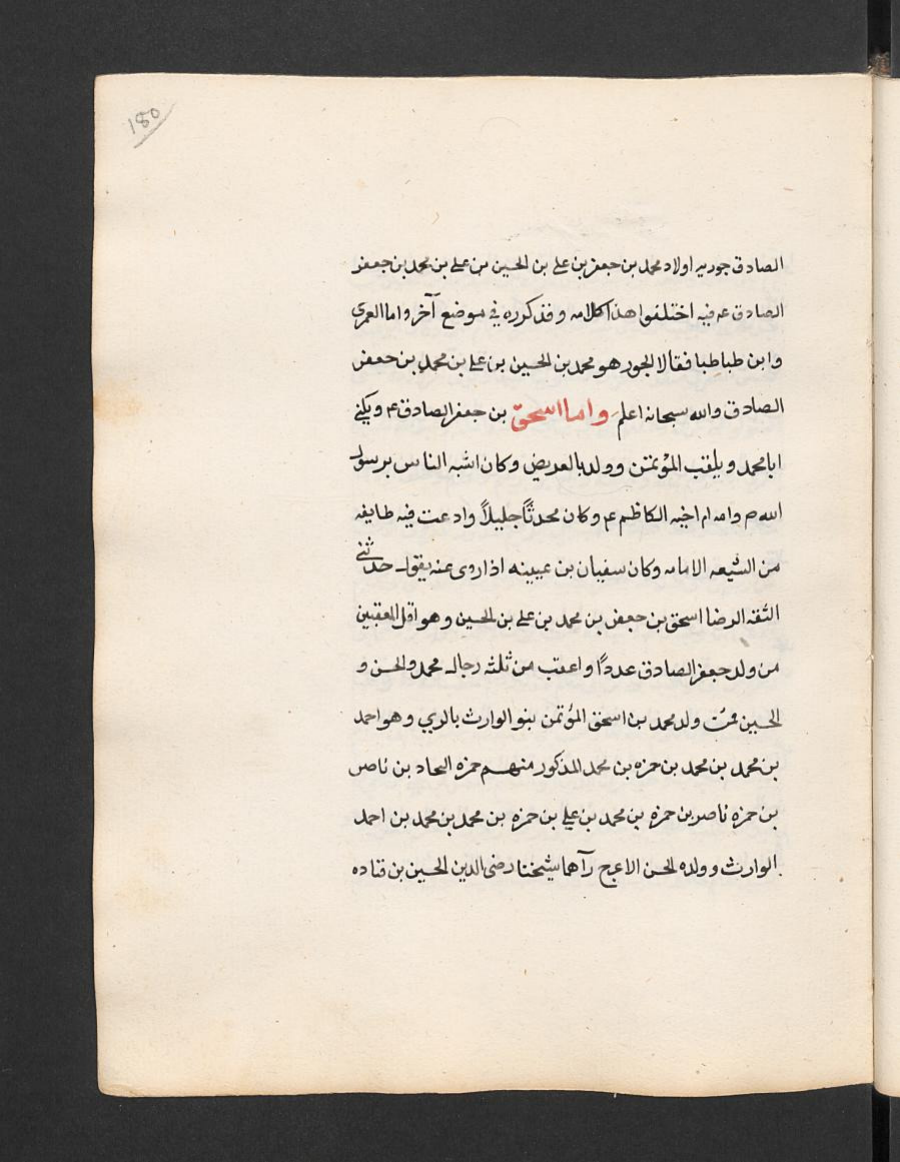 180
الصادق جوريه اولاد محمد بن جعفر بن على بن الحسين بن على بن محمد بن جعفر
الصادق ع م فيه اختلفوا هذا كلامه وقد كرره فى موضع آخر واما العمرى
وابن طباطبا فقالا الجور هو محمد بن الحسين بن على بن محمد بن جعفر
الصادق والله سبحانه اعلم واما اسحق بن جعفر الصادق ع م ويكنى
ابا محمد ويلقب المؤتمن وولد بالعريض وكان اشبه الناس برسول
الله ص وامه ام اخيه الكاظم ع م وكان محدثاً جليلاً وادعت فيه طايفه
من الشيعه الامامه وكان سفيان بن عيينه اذا روى عنه يقول حدثنى
الثقه الرضا اسحق بن جعفر بن محمد بن على بن الحسين وهو اقل المعقبين
من ولد جعفر الصادق عدداً واعقب من ثلثه رجال محمد والحسن و
الحسين فمن ولد محمد بن اسحق المؤتمن بنو الوارث بالري وهو احمد
بن محمد بن محمد بن حمزه بن محمد المذكور منهم حمزه النحاد بن ناصر
بن حمزه ناصر بن حمزه بن محمد بن علي بن حمزه بن محمد بن محمد بن احمد
الوارث وولده الحسن الاعرج رآهما شيخنا رضى الدين الحسين بن قتاده